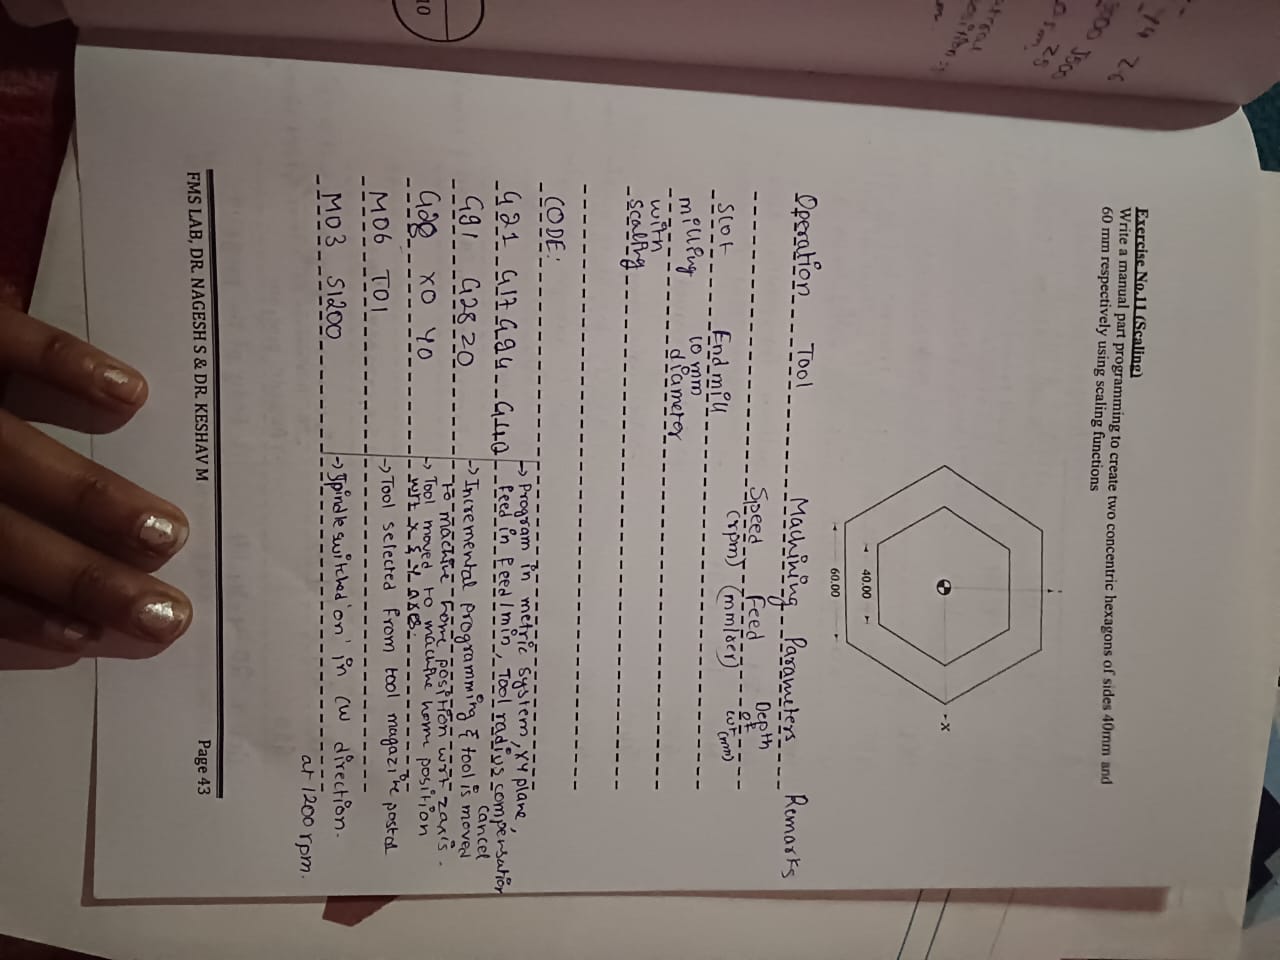 Y4 Z6
J500
Z5
Exercise No.11 (Scaling)
Write a manual part programming to create two concentric hexagons of sides 40mm and
60 mm respectively using scaling functions
X
40.00
60.00
Operation Tool Machining Parameters Remarks
Speed Feed Depth
(rpm) (mm/ser) of
cut (mm)
Slot End mill
milling 10 mm
diameter
with
scaling
CODE:
G21 G17 G94 G40 → Program in metric system, XY plane,
feed in feed/min, Tool radius compensation
cancel
G91 G28 Z0 → Incremental programming & tool is moved
to machine home position wrt z axis.
G28 X0 Y0 → Tool moved to machine home position
wrt x & y axes.
M06 T01 → Tool selected from tool magazine
M03 S1200 → Spindle switched 'on' in CW direction.
at 1200 rpm.
FMS LAB, DR. NAGESH S & DR. KESHAV M Page 43
10